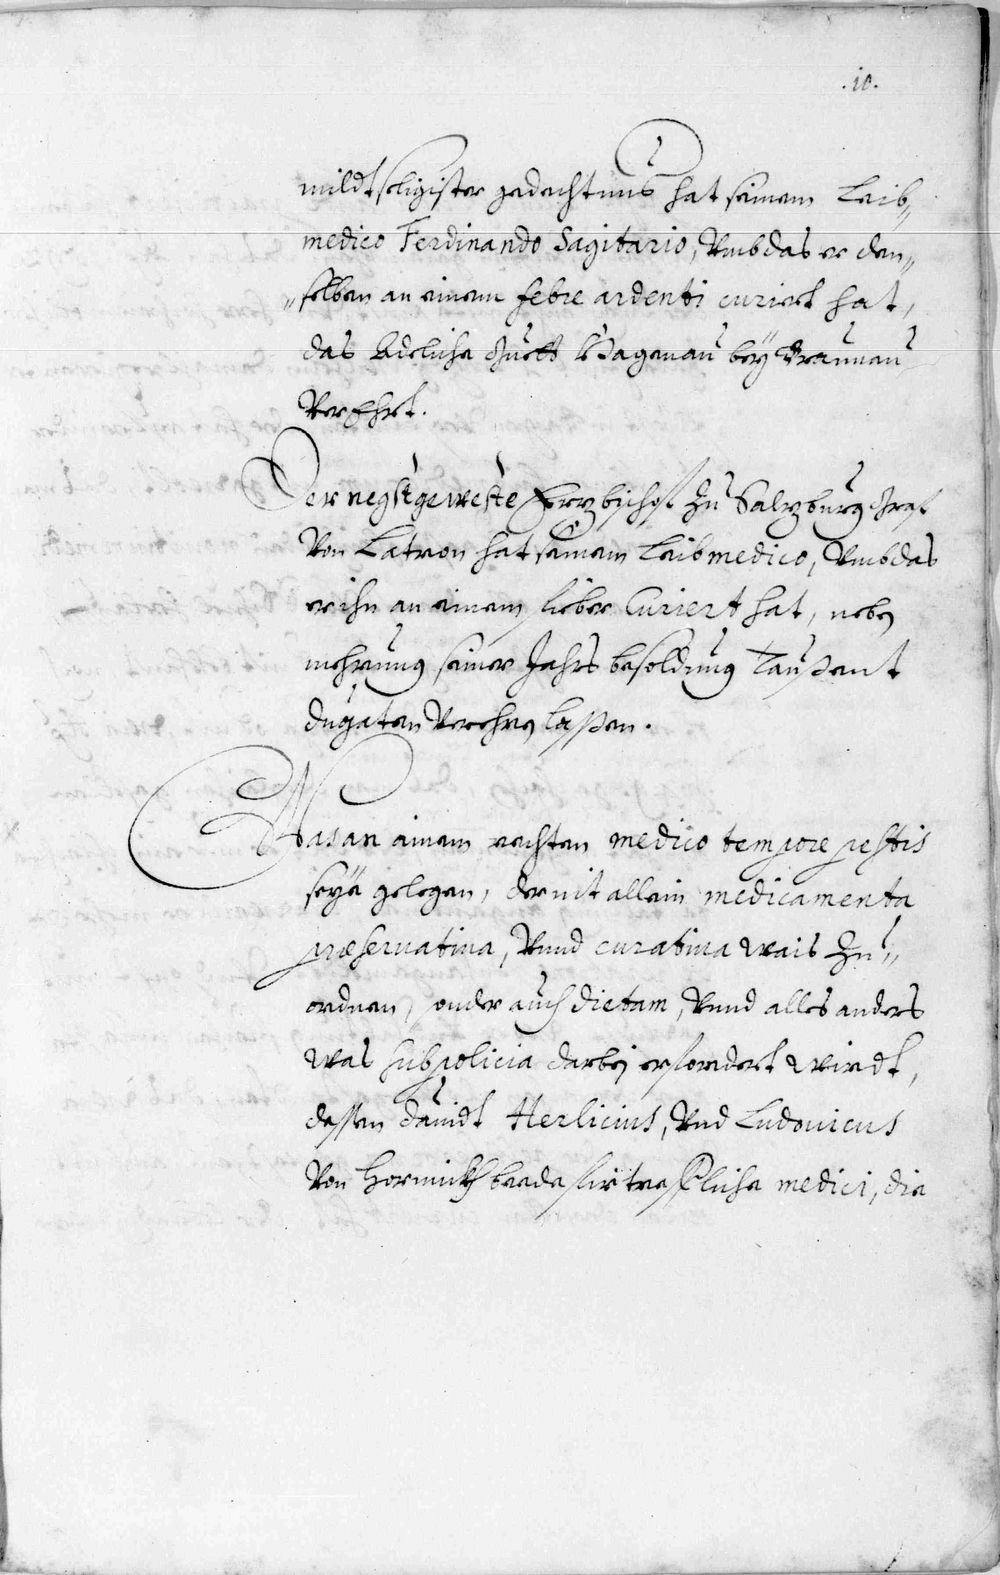 .10.
mildtseligister gedechtnus hat seinem Leib„
medico Ferdinando Sagitario, Vmb das er den„
„selben an einem febre ardenti curiert hat,
das Adeliche guett Hagenau bey Braunau
Verehrt.
Der negst geweste Erzbischof zu Salzburg Graf
Von Latron hat seinem Leibmedico, Vmb das
er ihn an einem fieber Curiert hat, neben
mehrung seiner Jahrs besoldung Taußent
dugaten Verehren lassen.
Was an einem rechten medico tempore pestis
seye gelegen, der nit allein medicamenta
præservativa, Vnnd curativa wais zu„
ordnen, sonder auch dietam, Vnnd alles anders
was sub policia darbey erfordert wirdt,
dessen Dauidt Herlicius, Vnd Ludouicus
Von Hörnickh beede fürtreffliche medici, die